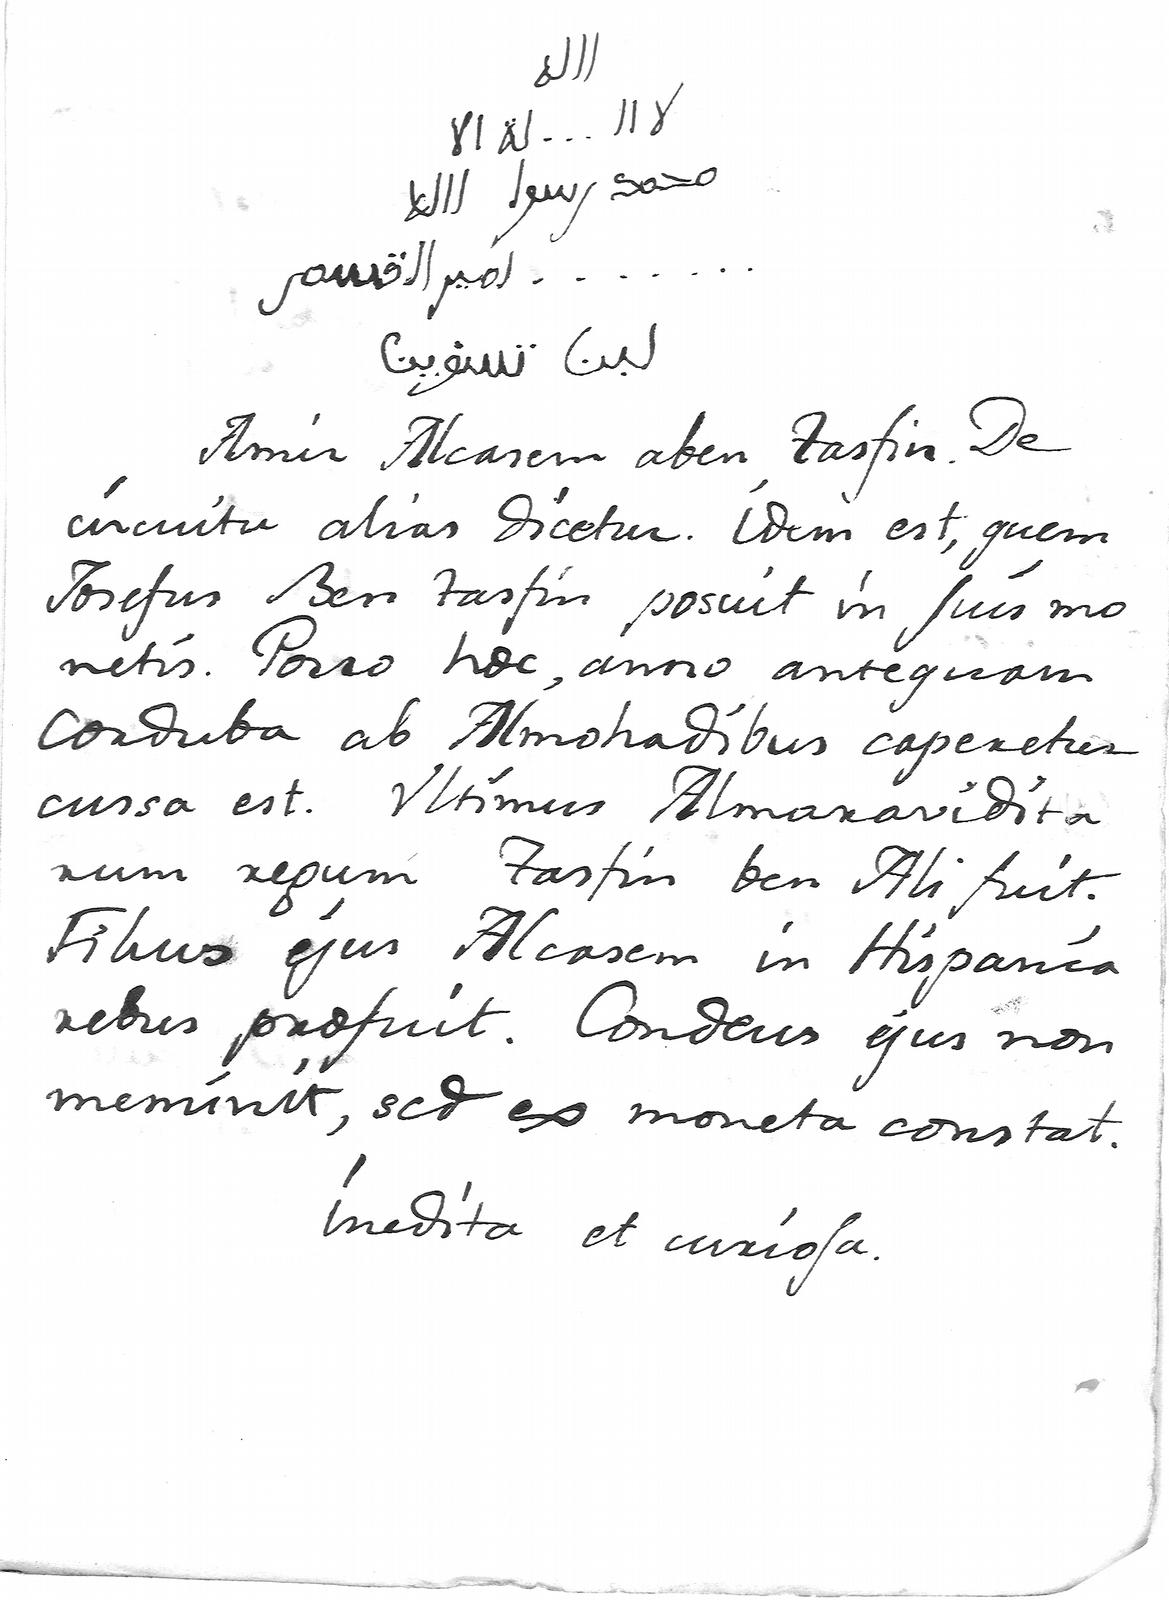 الله
لا ال...لة الا
محمد رسول الله
........ امير القسم
ابن تسفين
Amir Alcasem aben Tasfin. De
circuitu alias dicetur. Idem est, quem
Josefus Ben tasfin posuit in suis mo
netis. Porro hæc, anno antequam
Corduba ab Almohadibus caperetur
cussa est. Vltimus Almaravidita
rum regum Tasfin ben Ali fuit.
Filius ejus Alcasem in Hispania
rebus præfuit. Condeus ejus non
meminit, sed ex moneta constat.
Inedita et curiosa.